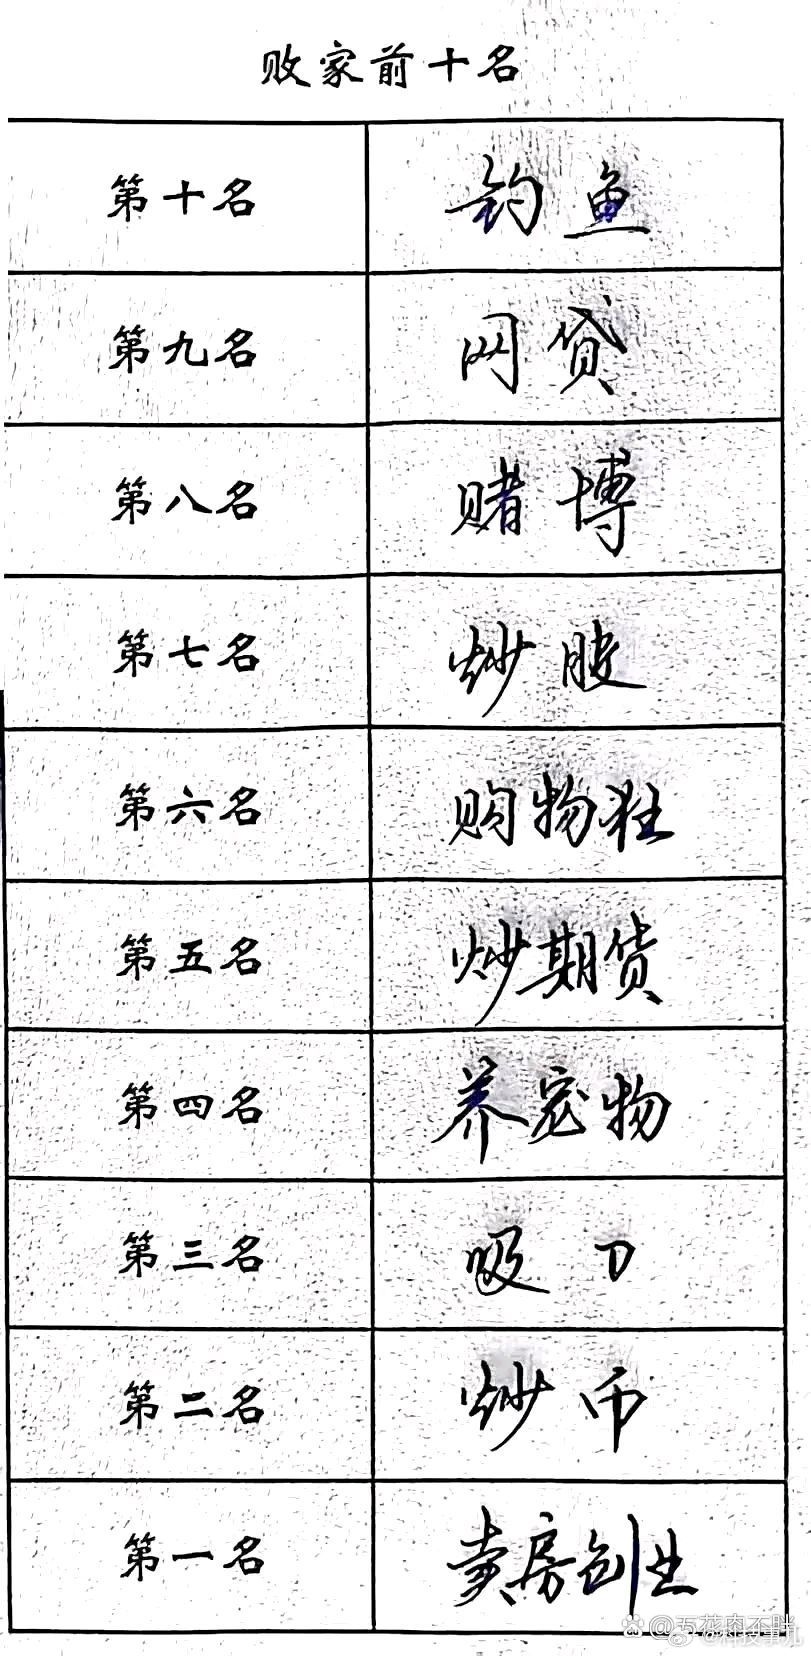 败家前十名
第十名 钓鱼
第九名 网贷
第八名 赌博
第七名 炒股
第六名 购物狂
第五名 炒期货
第四名 养宠物
第三名 吸刀
第二名 炒币
第一名 卖房创业
@五花肉不胖
@科技事儿